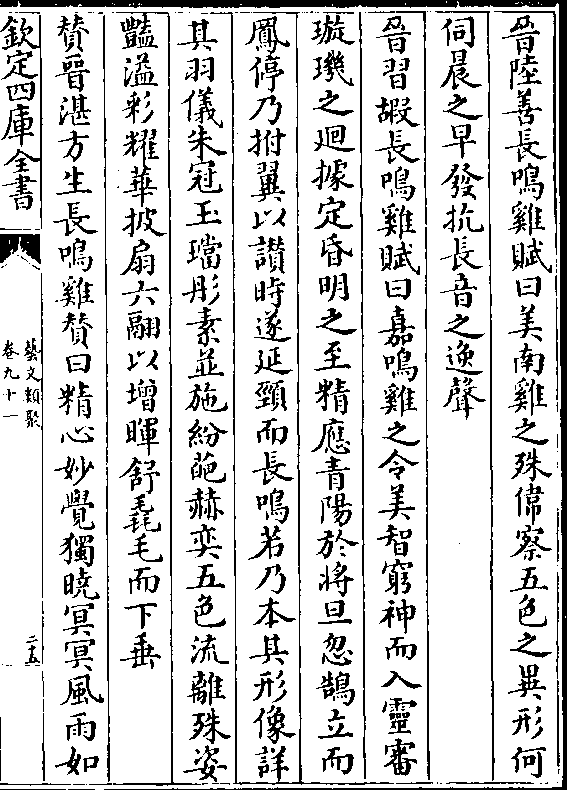 晉陸善長鳴雞賦曰美南雞之殊偉察五色之異形何
伺晨之早發抗長音之逸聲
晉習嘏長鳴雞賦曰嘉鳴雞之令美智窮神而入靈審
璇璣之廻據定昏明之至精應青陽於將旦忽鵠立而
鳳停乃拊翼以讃時遂延頸而長鳴若乃本其形像詳
其羽儀朱冠玉璫彤素並施紛葩赫奕五色流離殊姿
豔溢彩耀華披扇六翮以增暉舒毳毛而下垂
贊晉湛方生長鳴雞贊曰精心妙覺獨曉冥冥風雨如
欽定四庫全書
藝文類聚
卷九十一
二五